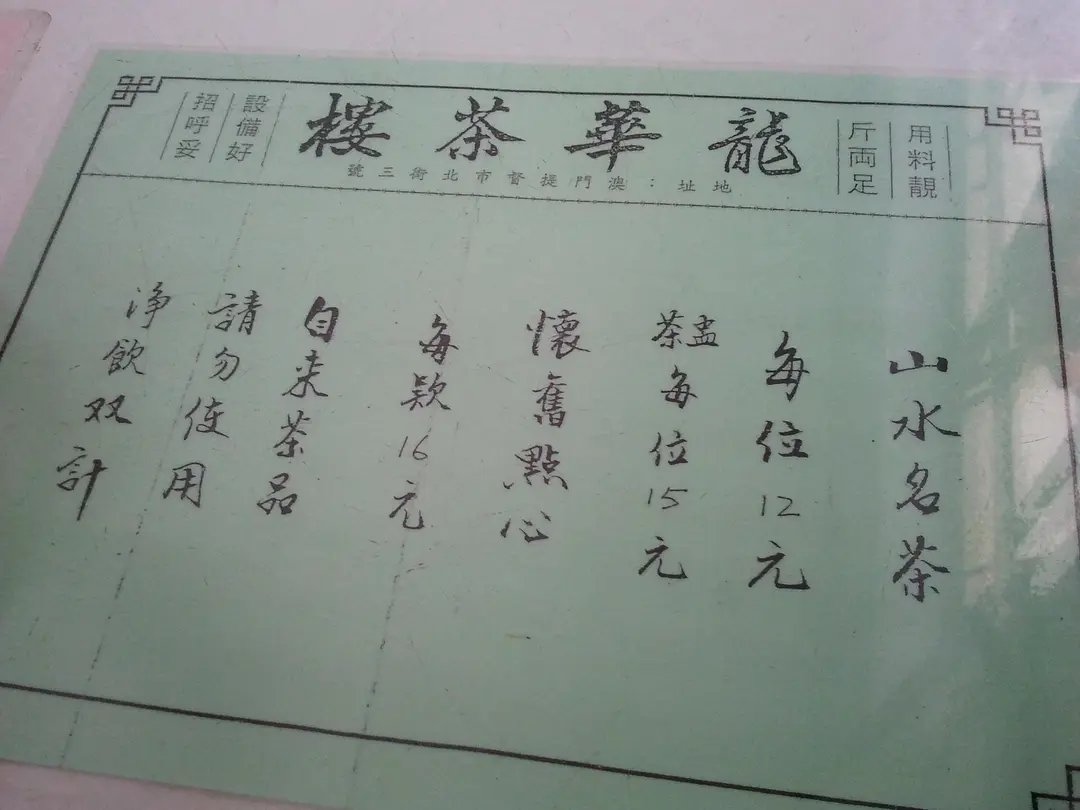 用料靚
斤両足
龍華茶樓
設備好
招呼妥
地址：澳門提督市北街三號
山水名茶
每位12元
茶盅每位15元
懷舊點心
每款16元
自來茶品
請勿使用
净飲双計